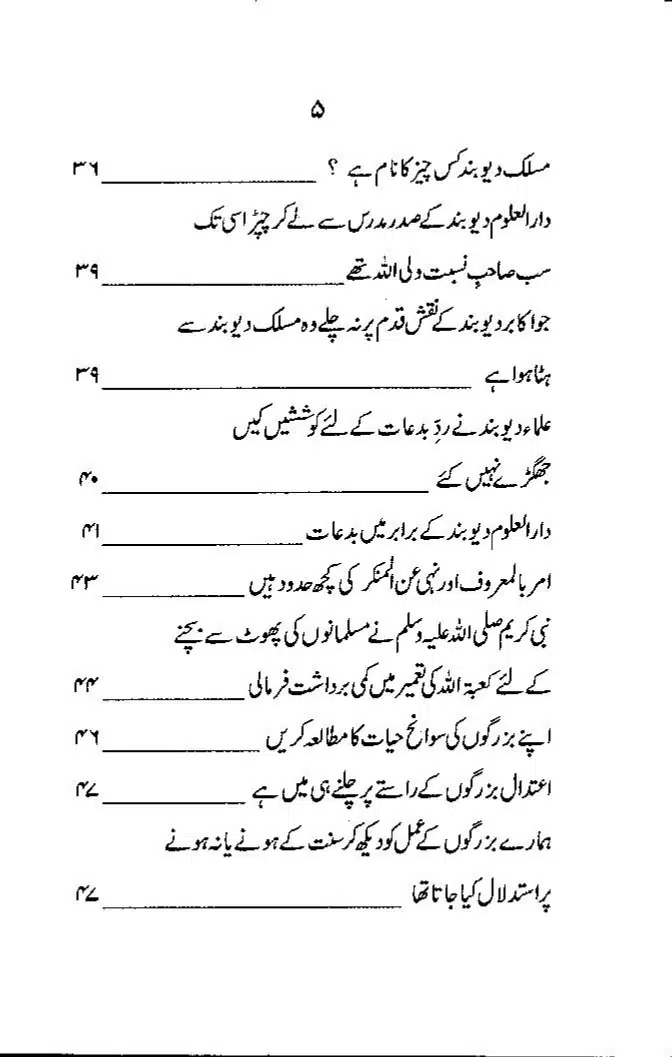 ۵
مسلک دیوبند کس چیز کا نام ہے ؟ ۳۶
دارالعلوم دیوبند کے صدر مدرس سے لے کر چپڑاسی تک
سب صاحبِ نسبت ولی اللہ تھے ۳۹
جو اکابر دیوبند کے نقش قدم پر نہ چلے وہ مسلک دیوبند سے
ہٹا ہوا ہے ۳۹
علماء دیوبند نے ردِّ بدعات کے لئے کوششیں کیں
جھگڑے نہیں کئے ۴۰
دارالعلوم دیوبند کے برابر میں بدعات ۴۱
امر بالمعروف اور نہی عن المنکر کی کچھ حدود ہیں ۴۳
نبی کریم صلی اللہ علیہ وسلم نے مسلمانوں کی پھوٹ سے بچنے
کے لئے کعبۃ اللہ کی تعمیر میں کمی برداشت فرمالی ۴۴
اپنے بزرگوں کی سوانح حیات کا مطالعہ کریں ۴۶
اعتدال بزرگوں کے راستے پر چلنے ہی میں ہے ۴۷
ہمارے بزرگوں کے عمل کو دیکھ کر سنت کے ہونے یا نہ ہونے
پر استدلال کیا جاتا تھا ۴۷